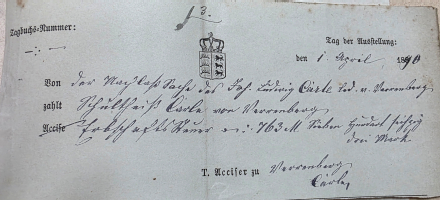 3.
Tagbuchs-Nummer:
Tag der Ausstellung:
den 1 April 1890
Von der Nachlaß Sache des Joh. Ludwig Carle Led. v. Verrenberg
zahlt Schultheiß Carle von Verrenberg
Accise Erbschafts Steuer 763 M Sieben Hundert sechzig
drei Mark
T. Acciser zu Verrenberg
Carle